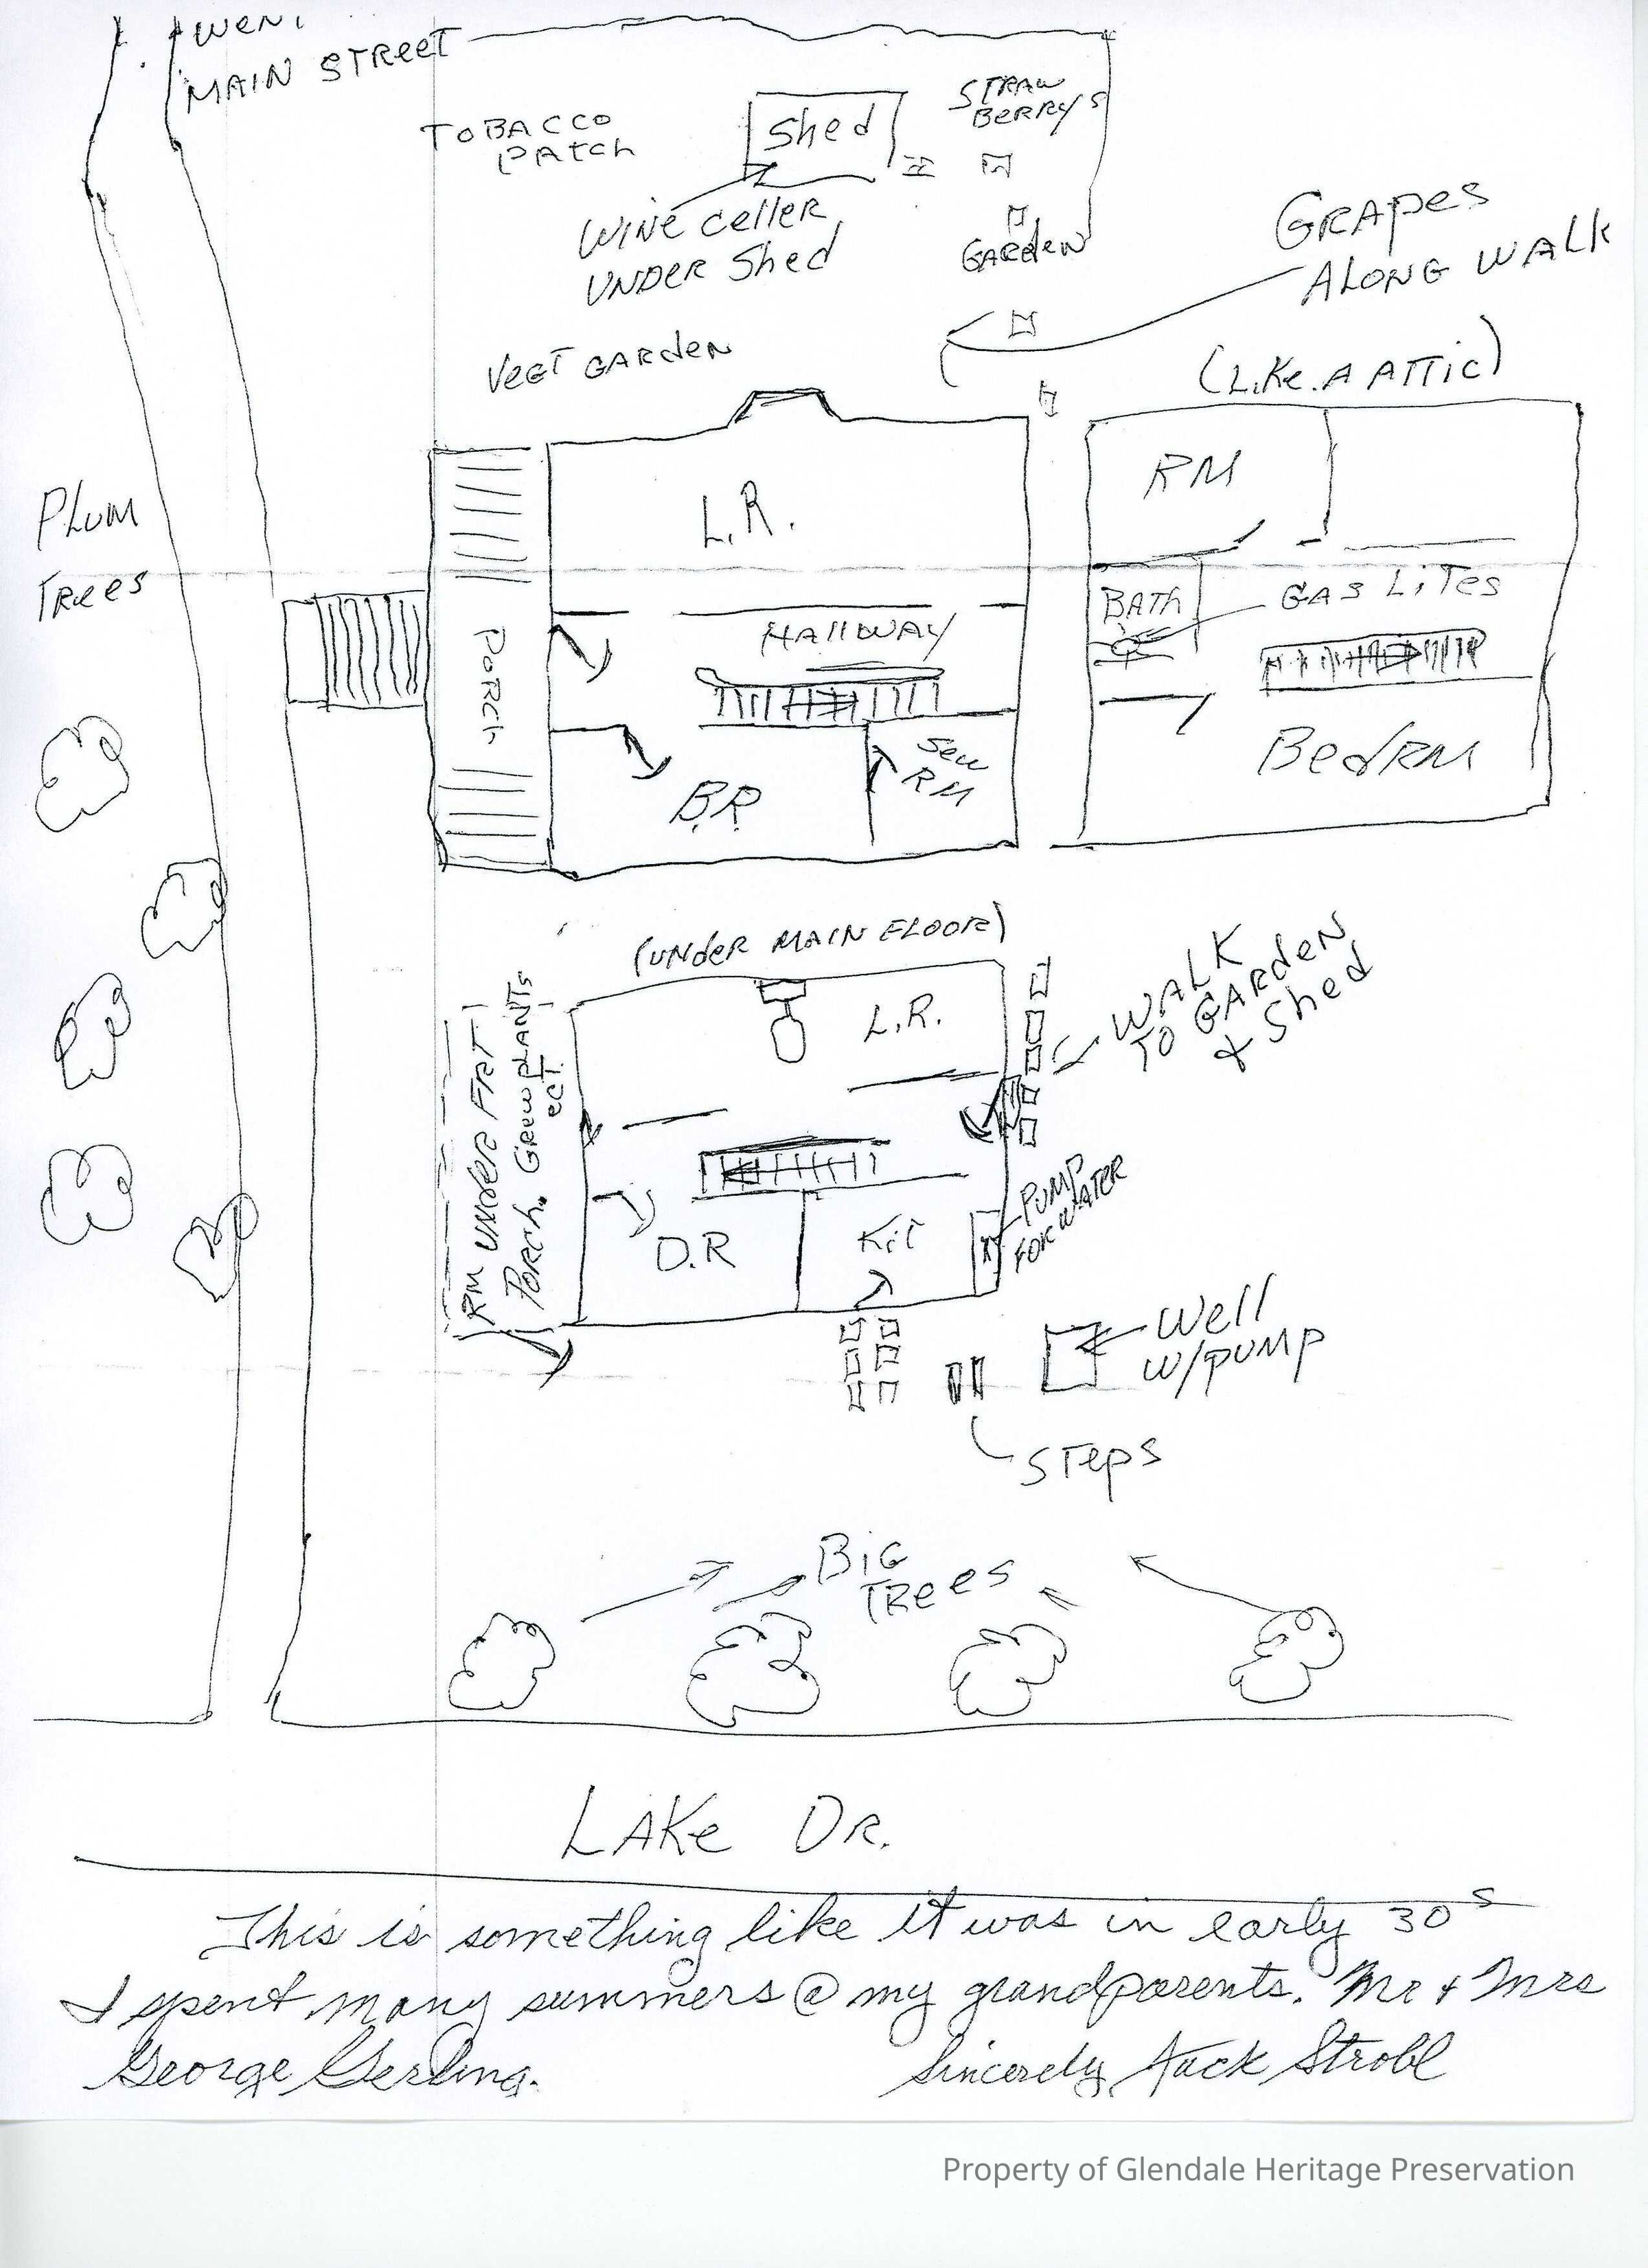 WENT
MAIN STREET
TOBACCO
PATCH
Shed
STRAW
BERRYS
WINE CELLER
UNDER Shed
GARDEN
GRAPES
ALONG WALK
VEGT GARDEN
(LIKE A ATTIC)
PLUM
TREES
L.R.
RM
PORCH
HALLWAY
BATH
GAS LITES
B.R.
SEW
RM
BedRM
(UNDER MAIN FLOOR)
L.R.
WALK
TO GARDEN
& Shed
RM UNDER FRT
PORCH. Grew PLANTS
ECT.
D.R
Kit
PUMP
FOR WATER
Well
W/PUMP
STEPS
BIG
TREES
LAKE DR.
This is something like it was in early 30s
I spent many summers @ my grandparents. Mr & Mrs
George Gerling.
Sincerely Jack Strobl
Property of Glendale Heritage Preservation